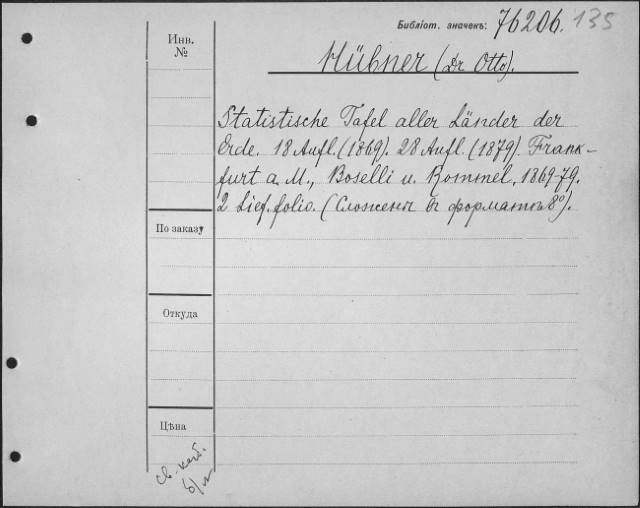 Библіот. значекъ: 76206. 135
Инв.
№
Hübner (Dr Otto).
Statistische Tafel aller Länder der
Erde. 18 Aufl. (1869). 28 Aufl. (1879). Frank-
furt a. M., Boselli u. Rommel, 1869-79.
2 Lief. folio. (Сложены въ форматъ 8º).
По заказу
Откуда
Цѣна
св. кат.